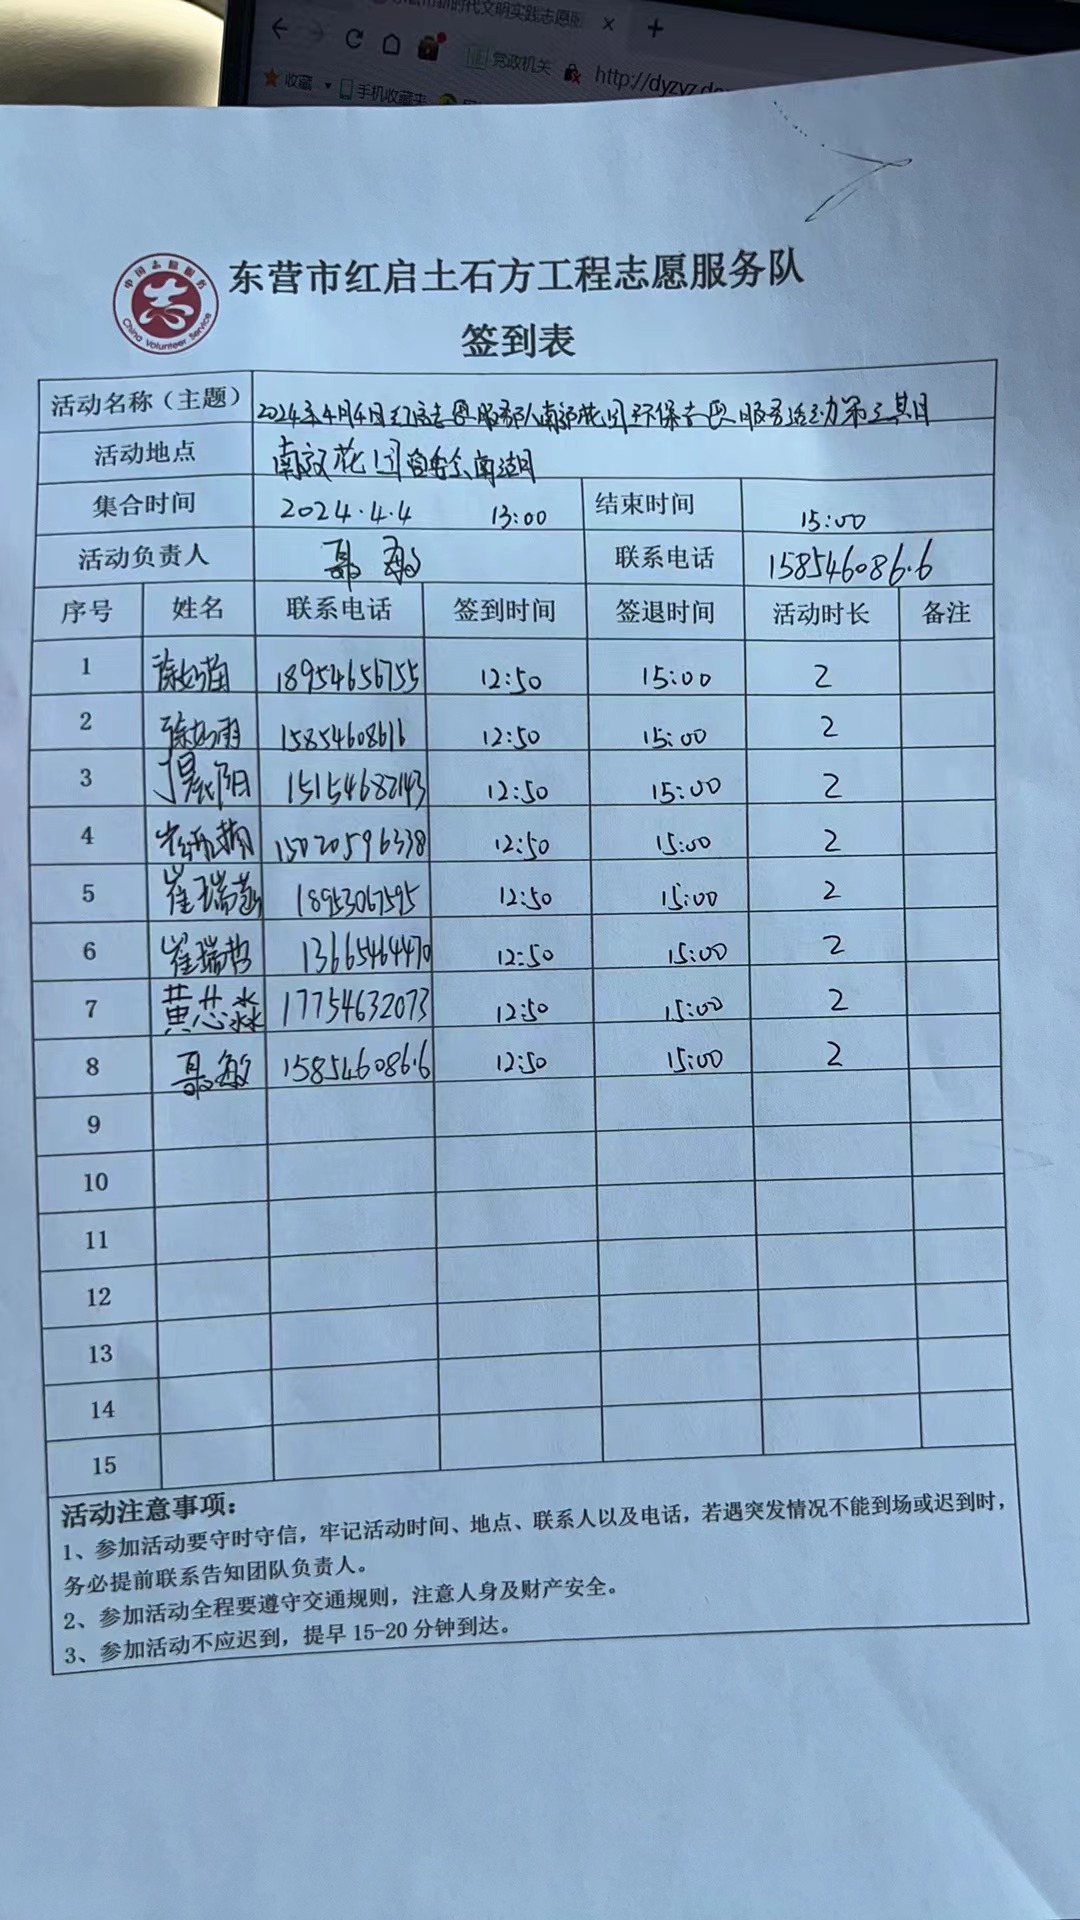 新时代文明实践志愿服
党政机关 http://dyzyz.do
收藏 手机收藏夹
中国志愿服务
China Volunteer Service
东营市红启土石方工程志愿服务队
签到表
活动名称（主题） 2024年4月4日红启志愿服务队南郊花园环保志愿服务活动第三期
活动地点 南郊花园
集合时间 2024.4.4 13:00 结束时间 15:00
活动负责人 聂敏 联系电话 158546086.6
序号 姓名 联系电话 签到时间 签退时间 活动时长 备注
1 18954656755 12:50 15:00 2
2 15854608616 12:50 15:00 2
3 15154682143 12:50 15:00 2
4 15020596338 12:50 15:00 2
5 崔瑞菡 18953067595 12:50 15:00 2
6 崔瑞哲 13665464470 12:50 15:00 2
7 黄芯淼 17754632073 12:50 15:00 2
8 聂敏 158546086.6 12:50 15:00 2
9
10
11
12
13
14
15
活动注意事项：
1、参加活动要守时守信，牢记活动时间、地点、联系人以及电话，若遇突发情况不能到场或迟到时，
务必提前联系告知团队负责人。
2、参加活动全程要遵守交通规则，注意人身及财产安全。
3、参加活动不应迟到，提早 15-20 分钟到达。